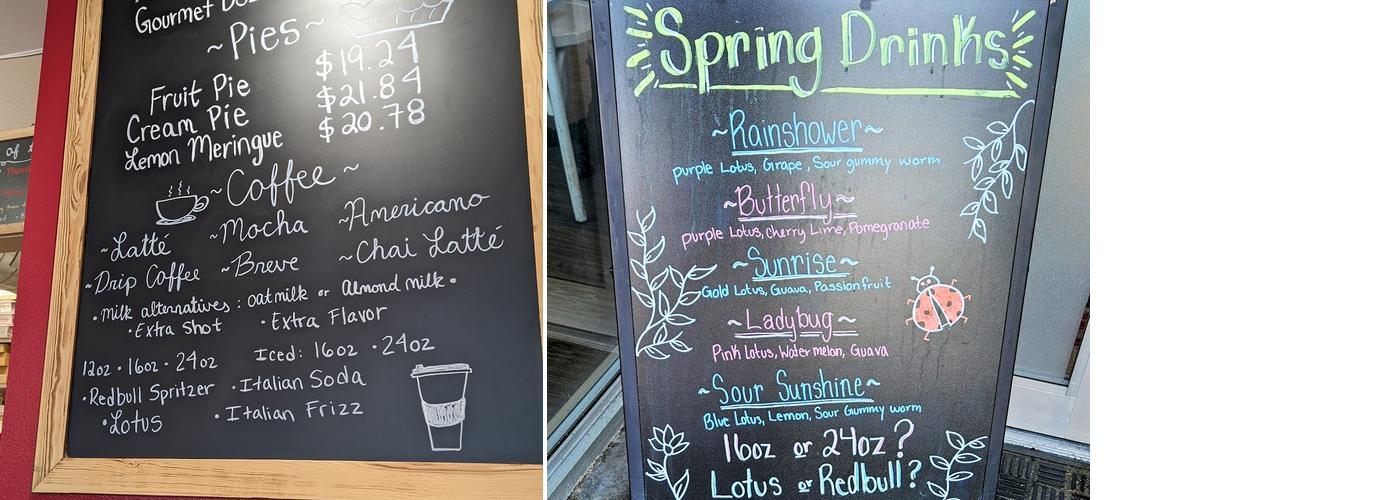 Gourmet
~Pies~
Fruit Pie $19.24
Cream Pie $21.84
Lemon Meringue $20.78
~Coffee~
~Latté ~Mocha ~Americano
~Drip Coffee ~Breve ~Chai Latté
• milk alternatives : oatmilk or Almond milk •
• Extra shot • Extra Flavor
12oz • 16oz • 24oz Iced: 16oz • 24oz
• Redbull Spritzer • Italian Soda
• Lotus • Italian Frizz
Spring Drinks
~Rainshower~
purple Lotus, Grape, Sour gummy worm
~Butterfly~
purple Lotus, cherry Lime, Pomegranate
~Sunrise~
Gold Lotus, Guava, Passionfruit
~Ladybug~
Pink Lotus, Watermelon, Guava
~Sour Sunshine~
Blue Lotus, Lemon, Sour Gummy worm
16oz or 24oz?
Lotus or Redbull?